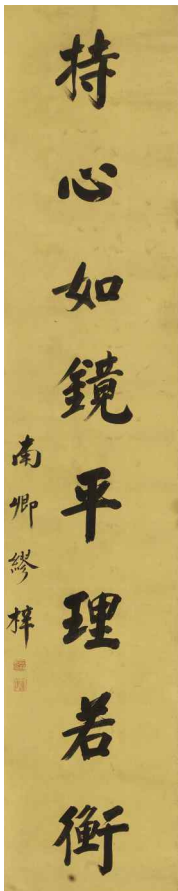 持心如鏡平理若衡
南卿繆梓